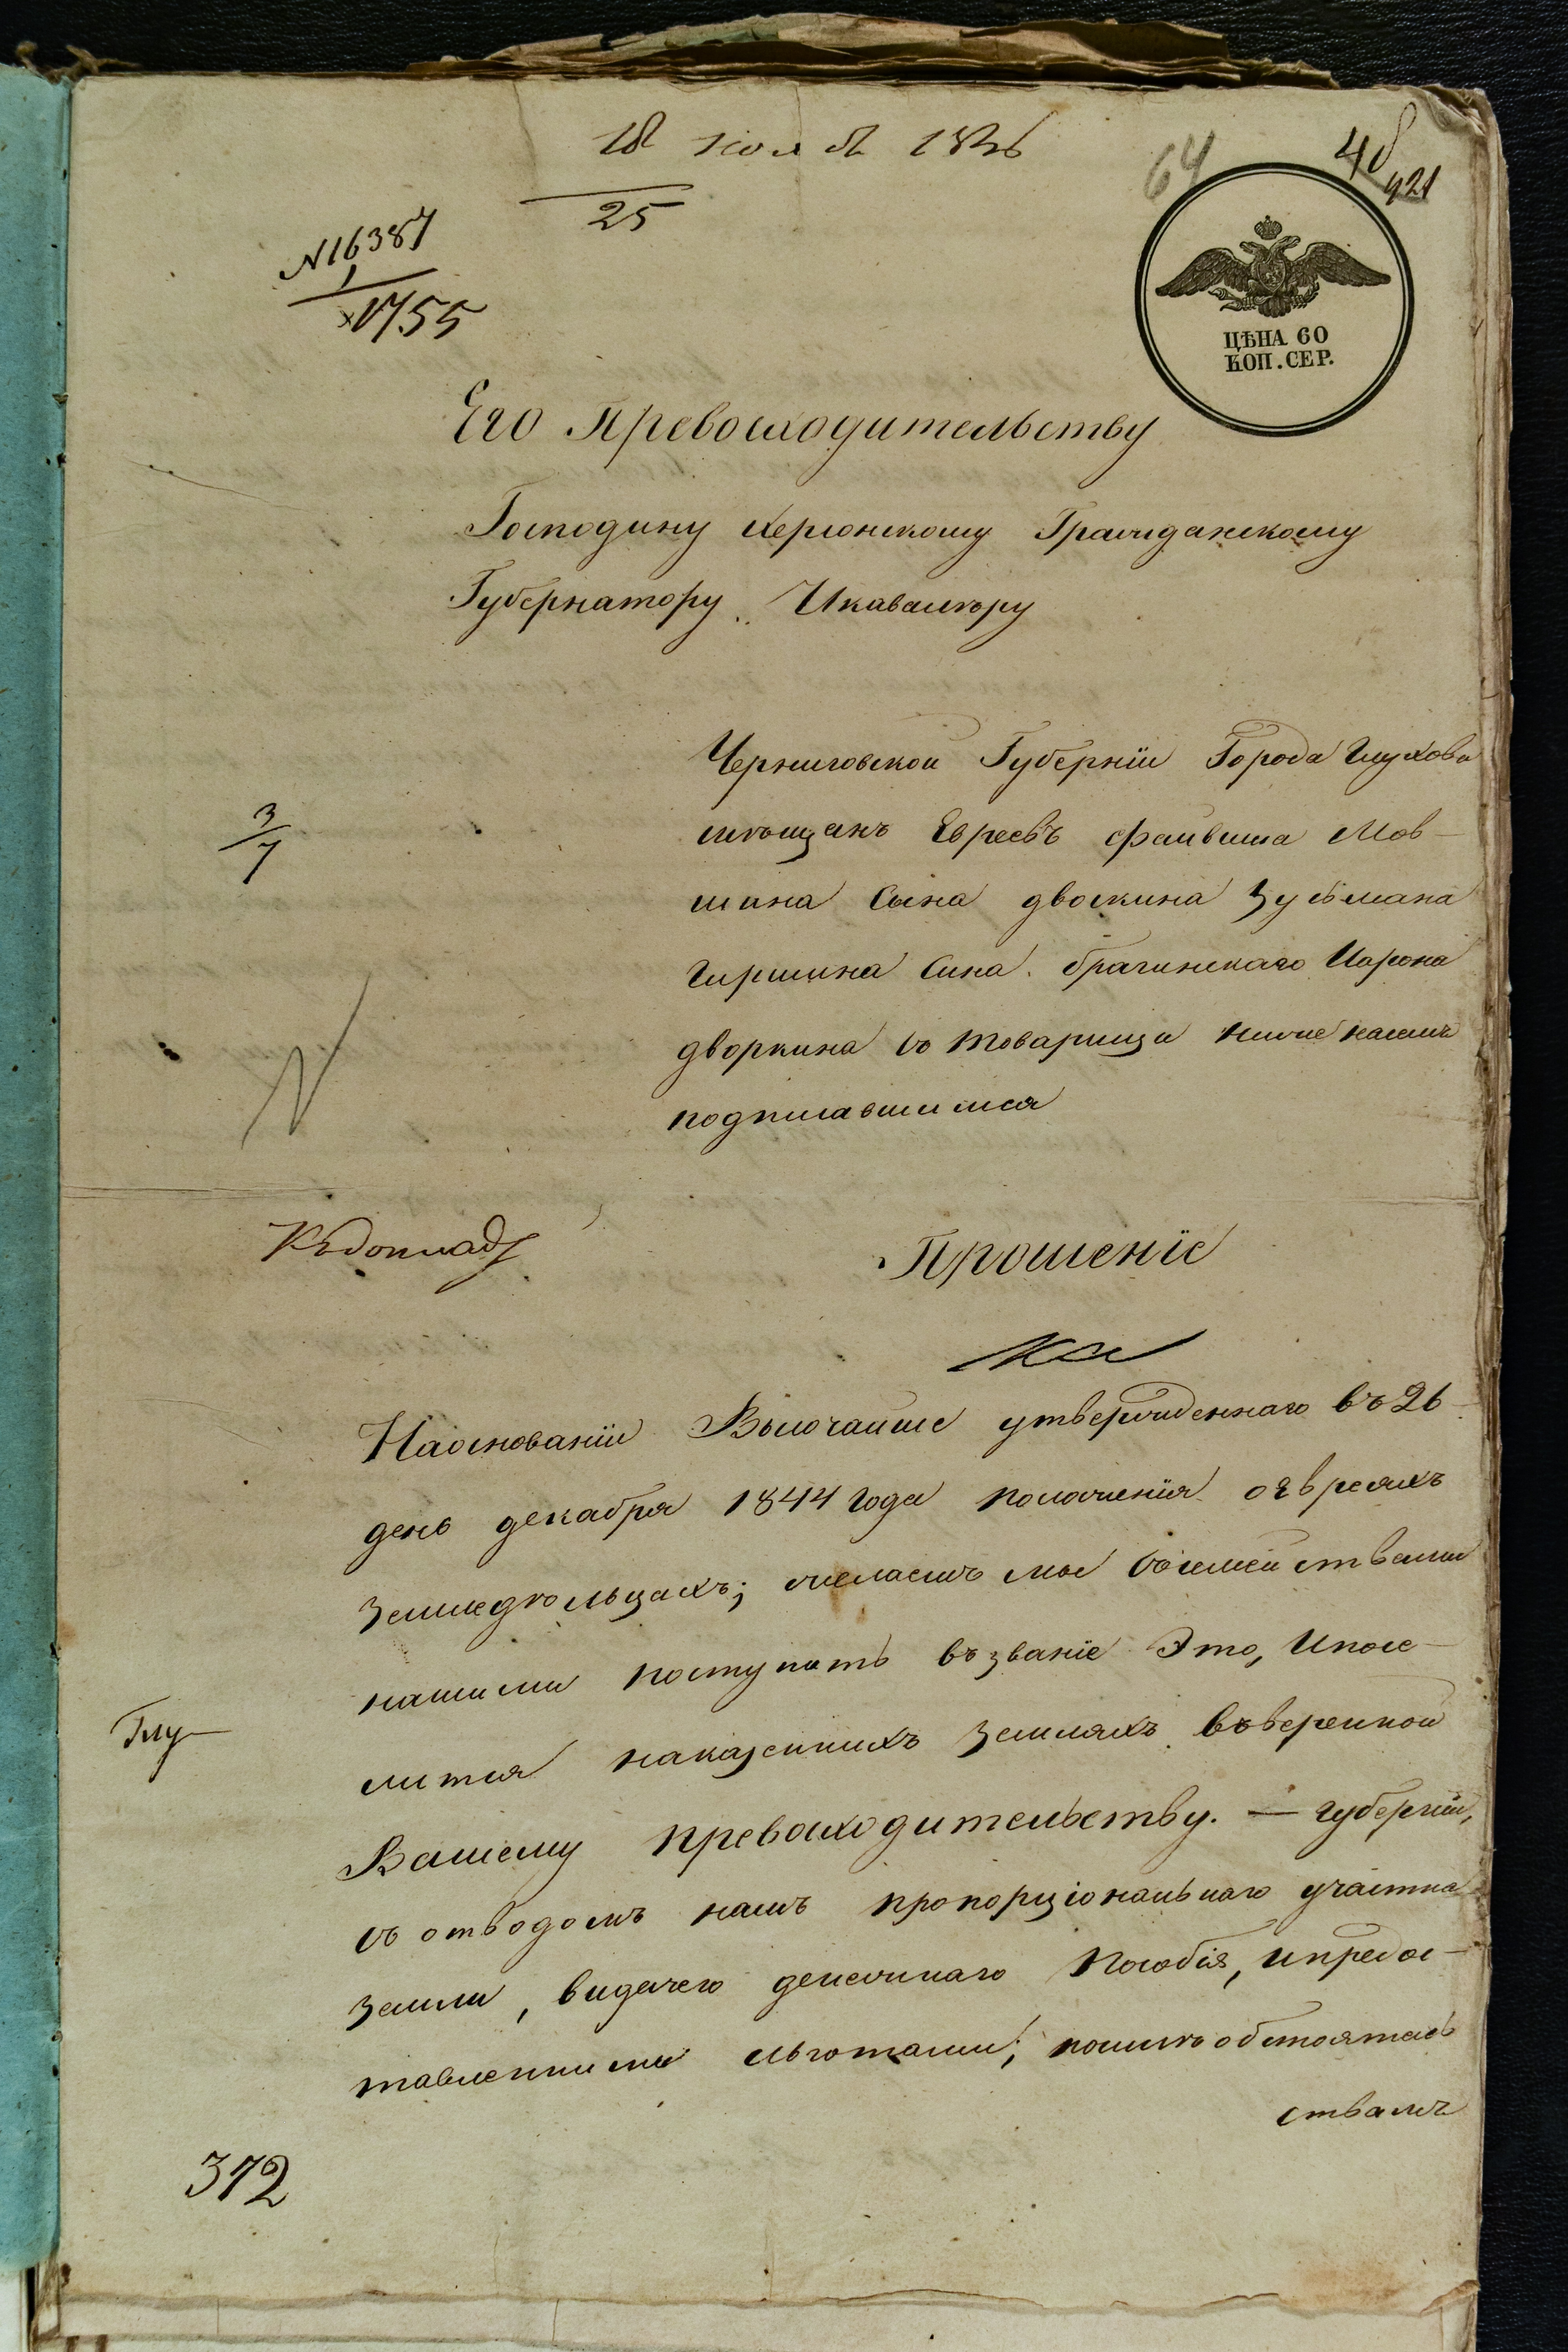 18 1846
25
64
421
N 16387
1755
ЦѢНА 60
КОП. СЕР.
Его Превосходительству
Господину Херсонскому Гражданскому
Губернатору Икавалѣру
Черниговской Губерніи Города Глухова
мѣщанъ Евреевъ Файвиша Мов-
шина Сына двоскина Зусьмана
Гиршина Сина брагинскаго
3/7
дворкина со товарищи ниже
подписавшимися
Къдокладу
Прошеніе
Наоснованіи Высочайше утвержденнаго въ 26
день декабря 1844 Года положенія оЕвреяхъ
Земледѣльцахъ; желаемъ мы сосемействами
нашими поступить възваніе Это, Ипосе-
Глу
литься наказеннихъ Земляхъ въверенной
Вашему превосходительству. — губерніи,
съ отводомъ намъ пропорціональнаго участка
Земли, видачею денежнаго Пособія, ипредос-
тавленними льготами; обстоятель
ствамъ
372